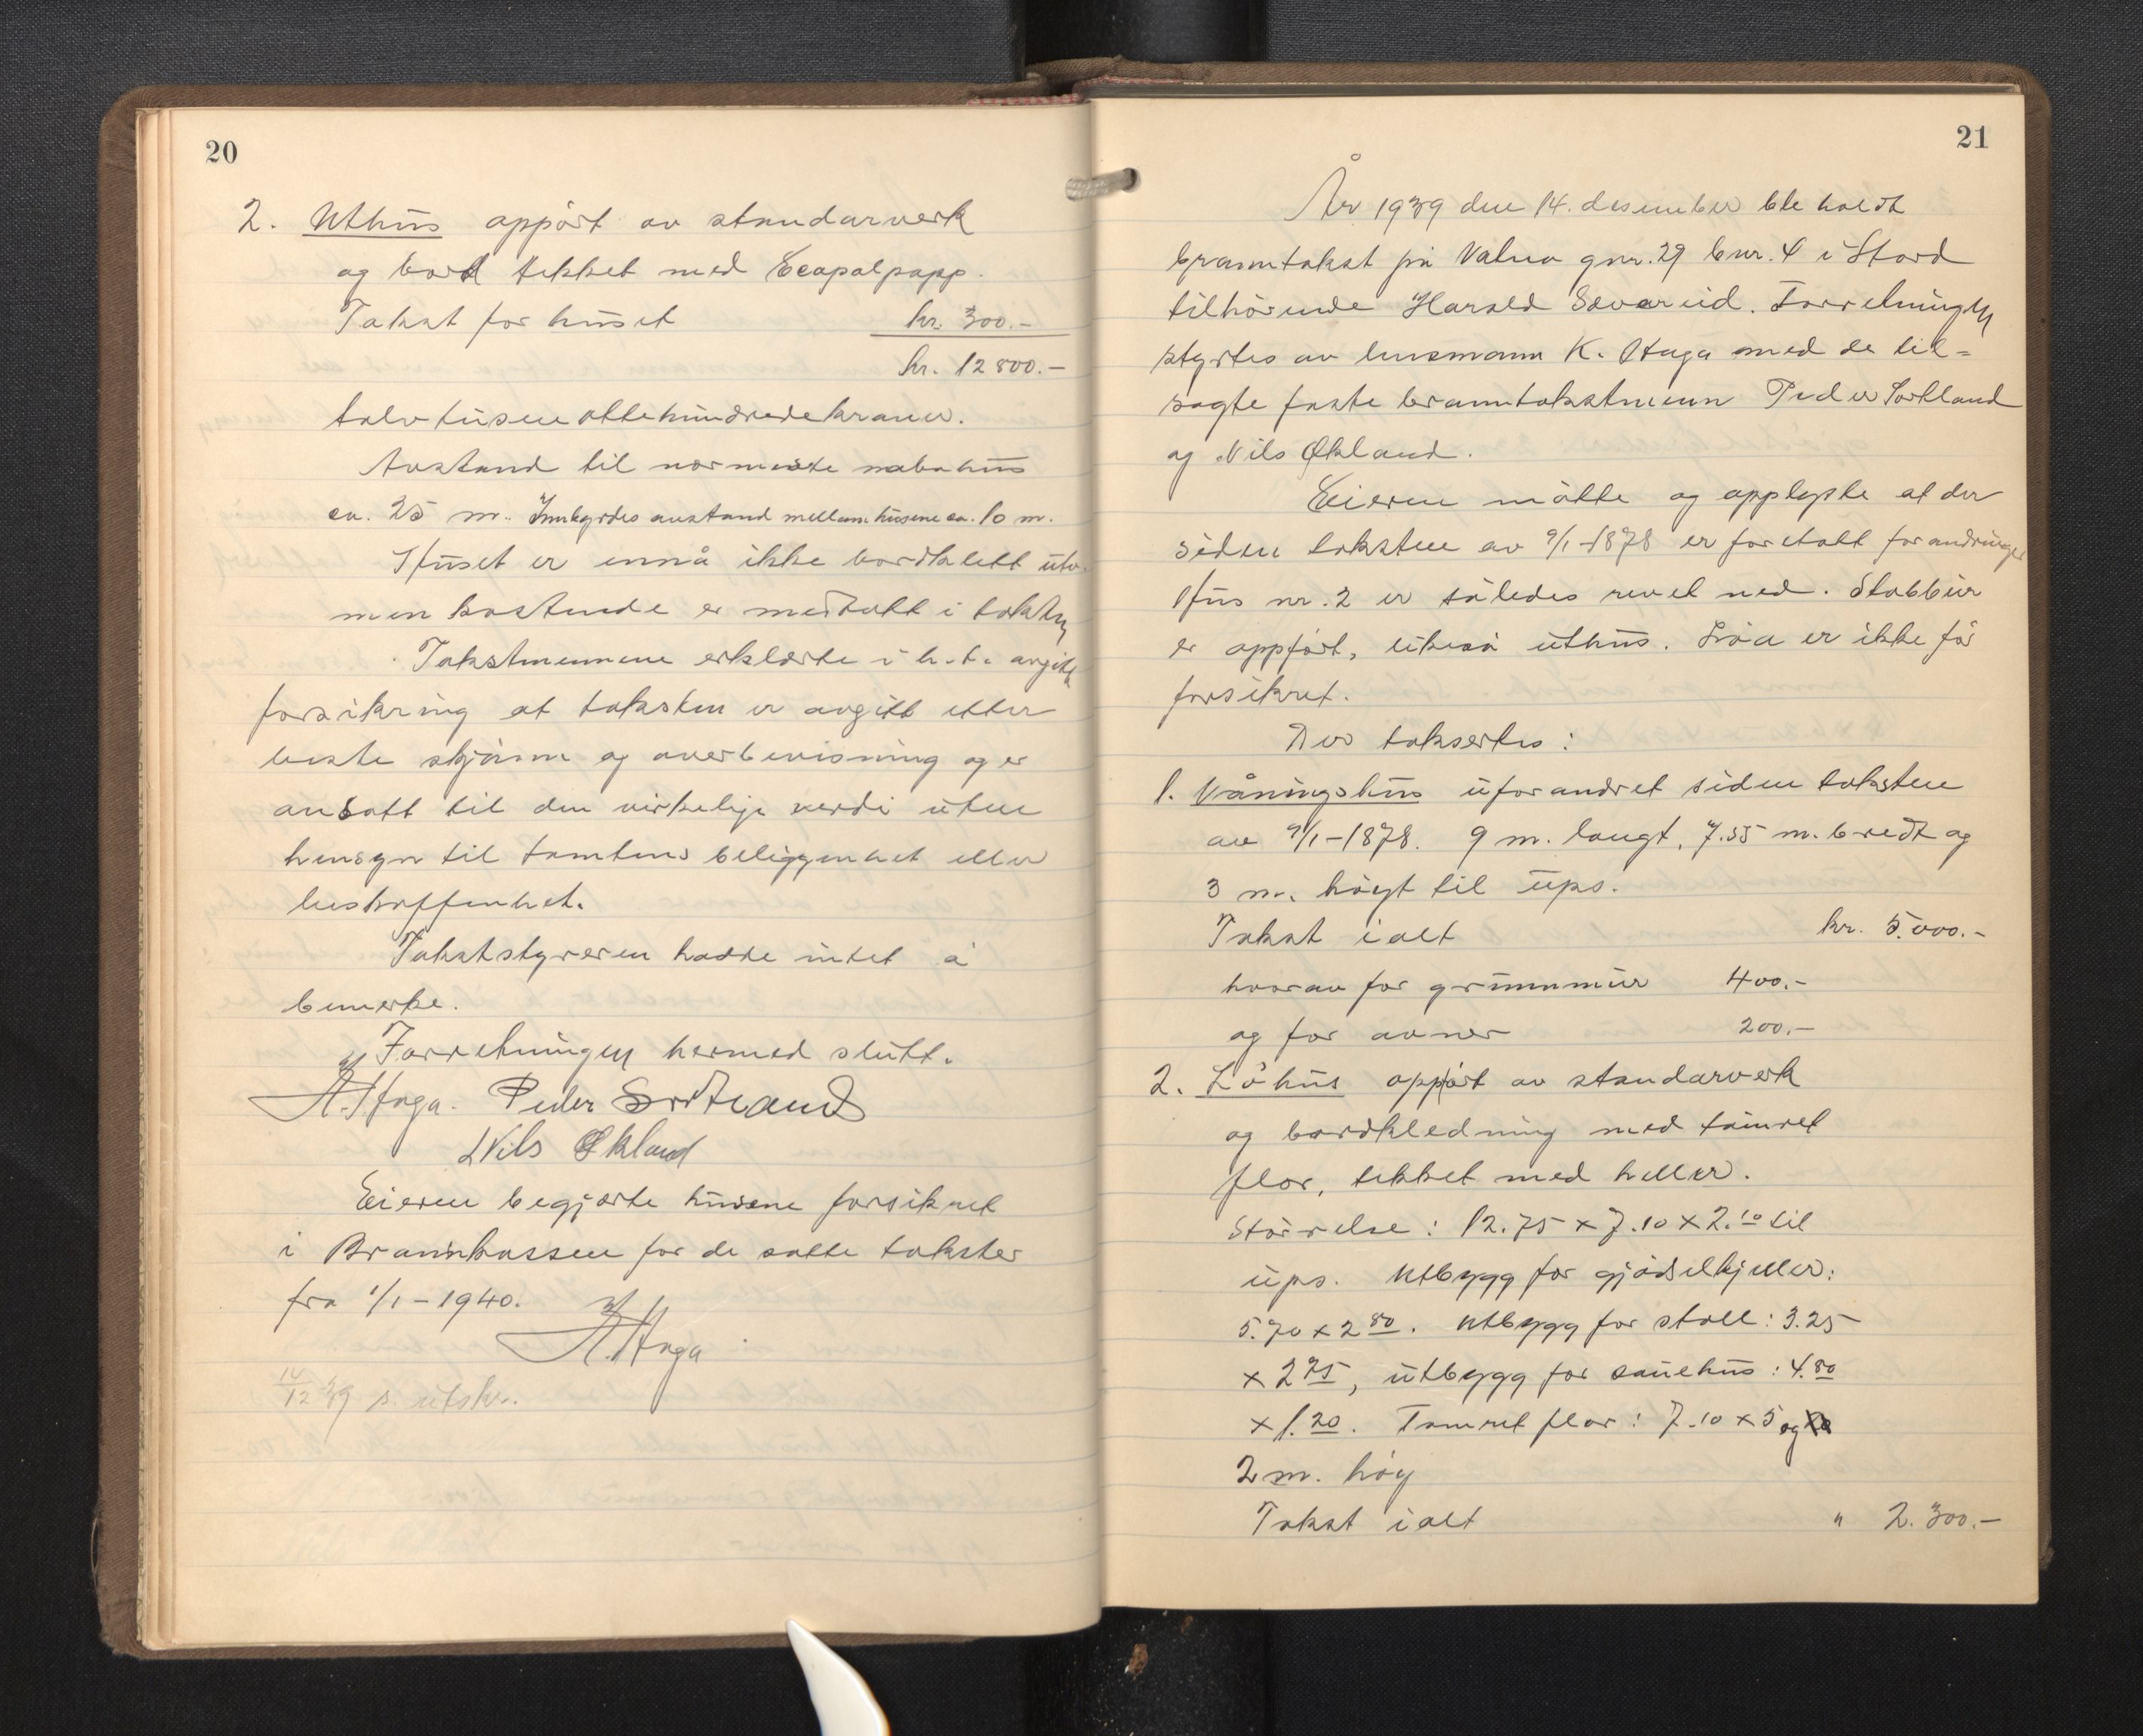 20
2. Uthus oppørt av standarverk
og bord tekket med Ecopalpapp.
Takst for huset kr. 300.-
kr. 12 800.-
tolvtusenottehundredekroner.
Avstand til nærmeste nabohus
ca. 25 m. Innbyrdes avstand mellem husene ca. 10 m.
Huset er ennå ikke bordklett utv.
men kostende er medtatt i taksten
Takstmennene erklærte i h.t. avgitt
forsikring at taksten er avgitt etter
beste skjønn og overbevisning og er
ansatt til den virkelige verdi uten
hensyn til tomtens beliggenhet eller
beskaffenhet.
Takststyreren hadde intet å
bemerke.
Forretningen hermed slutt.
K. Haga. Peder Sortland
Nils Økland
Eieren begjærte husene forsikret
i Brannkassen for de satte takster
fra 1/1-1940.
K. Haga
14/12 39 s. utskr.
21
År 1939 den 14. desember ble holdt
branntakst på Valna gnr. 29 bnr. 4 i Stord
tilhørende Harald Sævareid. Forretningen
styrtes av lensmann K. Haga med de til=
sagte faste branntakstmenn Peder Sortland
og Nils Økland.
Eieren møtte og opplyste at der
siden taksten av 9/1-1878 er foretatt forandringer
Hus nr. 2 er således revet ned. Stabbur
er oppført, likeså uthus. Løa er ikke før
forsikret.
Der taksertes:
1. Våningshus uforandret siden taksten
av 9/1-1878. 9 m. langt, 7.55 m. bredt og
3 m. høgt til ups.
Takst ialt kr. 5.000.-
hvorav for grunnmur 400.-
og for ovner 200.-
2. Løhus oppført av standarverk
og bordkledning med tømret
flor, tekket med heller.
Størrelse: 12.75 x 7.10 x 2.10 til
ups. Utbygg for gjødselkjeller:
5.70 x 2.80. Utbygg for stall: 3.25
x 2.75, utbygg for sauehus: 4.80
x 1.20. Tømret flor: 7.10 x 5 og
2 m. høg
Takst ialt " 2.300.-